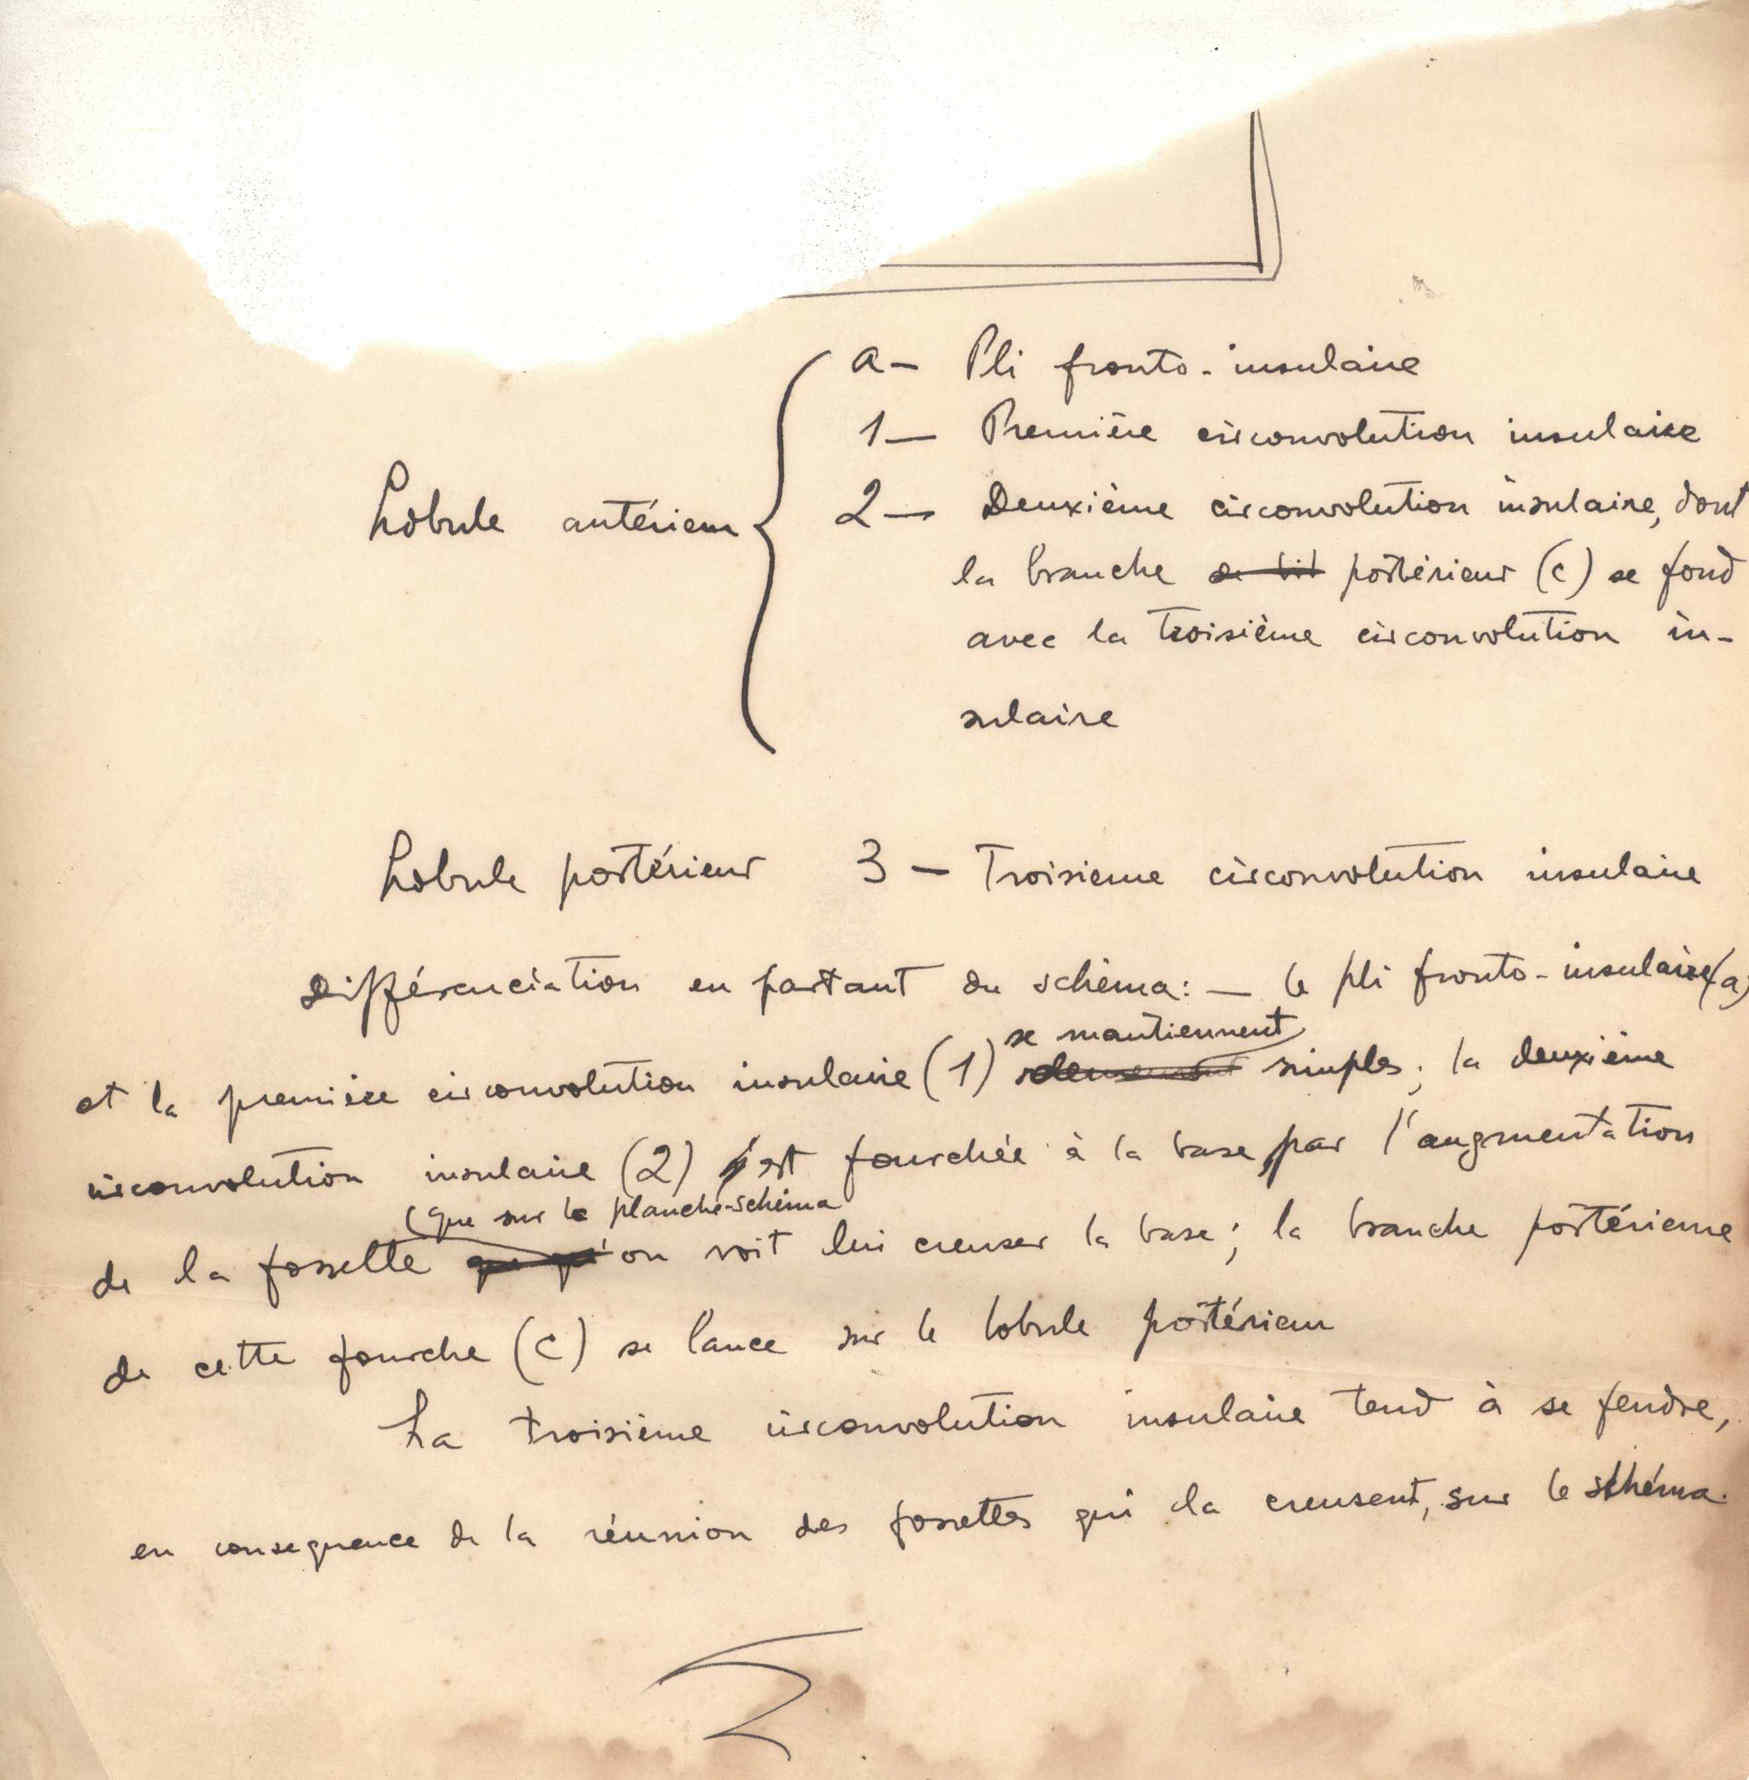 a — Pli fronto-insulaire
1 — Première circonvolution insulaire
Lobule antérieur
2 — Deuxième circonvolution insulaire, dont
la branche postérieur (c) se fond
avec la troisième circonvolution in-
sulaire
Lobule postérieur 3 — Troisieme circonvolution insulaire
Différenciation en partant du schéma: — le pli fronto-insulaire (a)
se mantiennent
et la première circonvolution insulaire (1) simples; la deuxième
circonvolution insulaire (2) est fourchée à la base par l'augmentation
que sur le planche-schéma
de la fossette on voit lui creuser la base; la branche postérieure
de cette fourche (c) se lance sur le lobule postérieur
La troisième circonvolution insulaire tend à se fendre,
en consequence de la réunion des fossettes qui la creusent, sur le schéma.